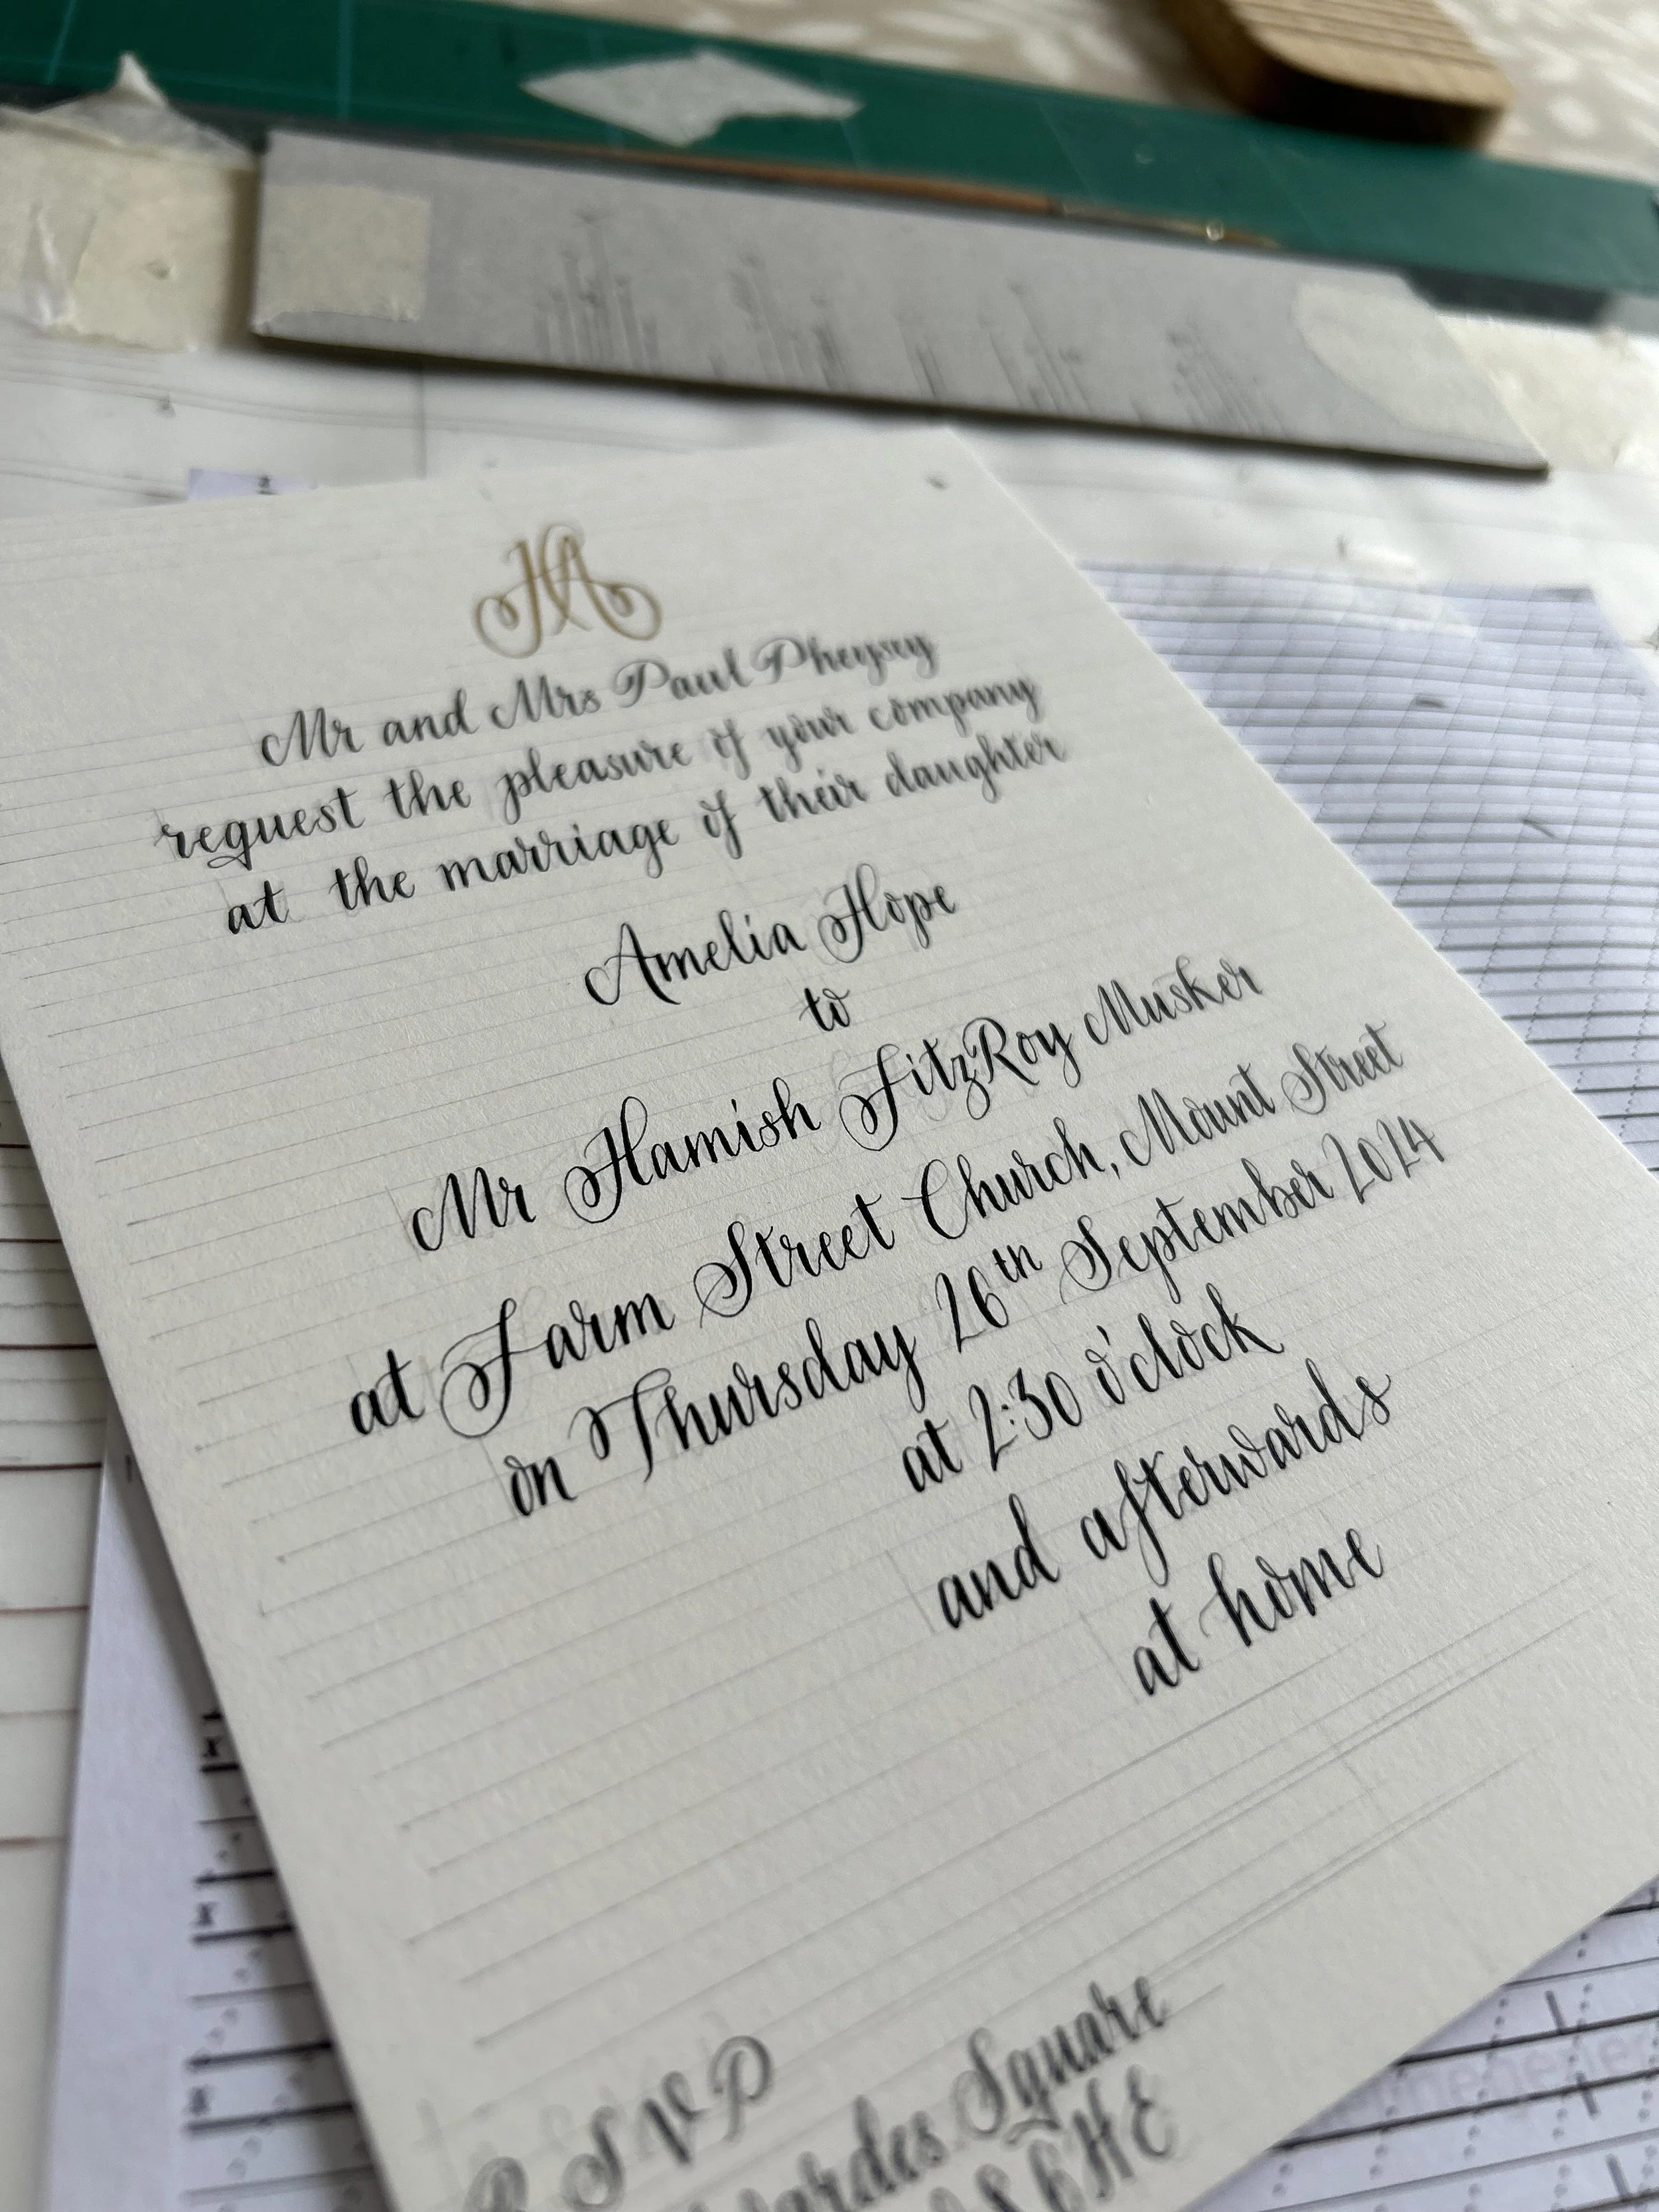 HA
Mr and Mrs Paul Pheysey
request the pleasure of your company
at the marriage of their daughter
Amelia Hope
to
Mr Hamish FitzRoy Musker
at Farm Street Church, Mount Street
on Thursday 26th September 2024
at 2:30 o'clock
and afterwards
at home
R S V P
Square